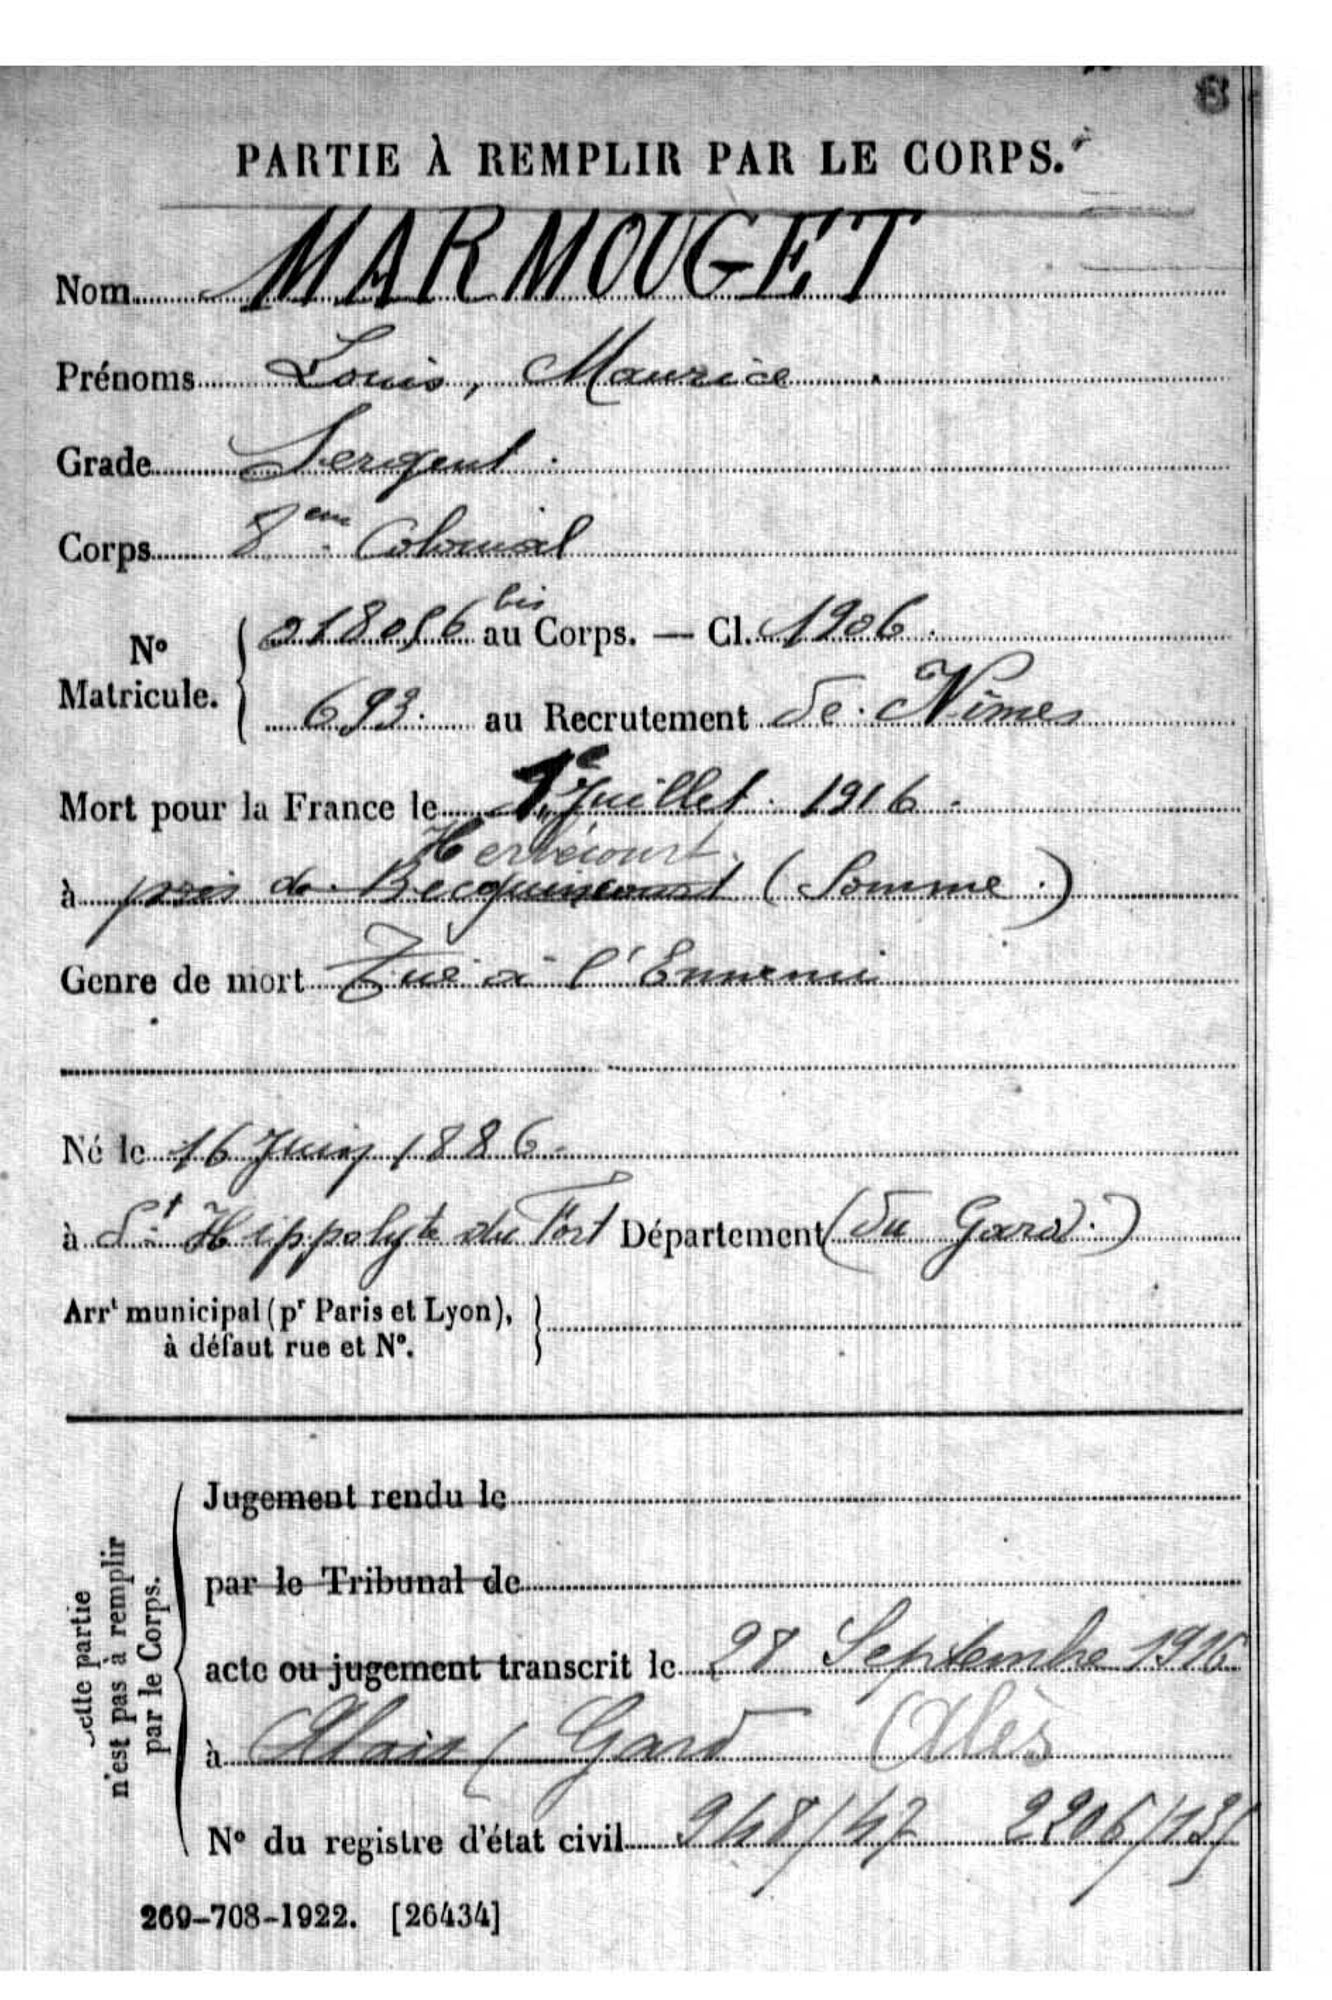 PARTIE À REMPLIR PAR LE CORPS.
Nom MARMOUGET
Prénoms Louis, Maurice
Grade Sergent
Corps 8eme Colonial
No Matricule. 018056 bis au Corps. — Cl. 1906.
693. au Recrutement de Nîmes
Mort pour la France le 1e Juillet 1916.
Herbécourt
à près de Becquincourt (Somme.)
Genre de mort Tué à l'Ennemi
Né le 16 Juin 1886.
à St Hippolyte du Fort Département (du Gard.)
Arrt municipal (pr Paris et Lyon),
à défaut rue et No.
Cette partie
n'est pas à remplir
par le Corps.
Jugement rendu le
par le Tribunal de
acte ou jugement transcrit le 28 Septembre 1916
à Alais (Gard Alès
No du registre d'état civil 948/47
269-708-1922. [26434]